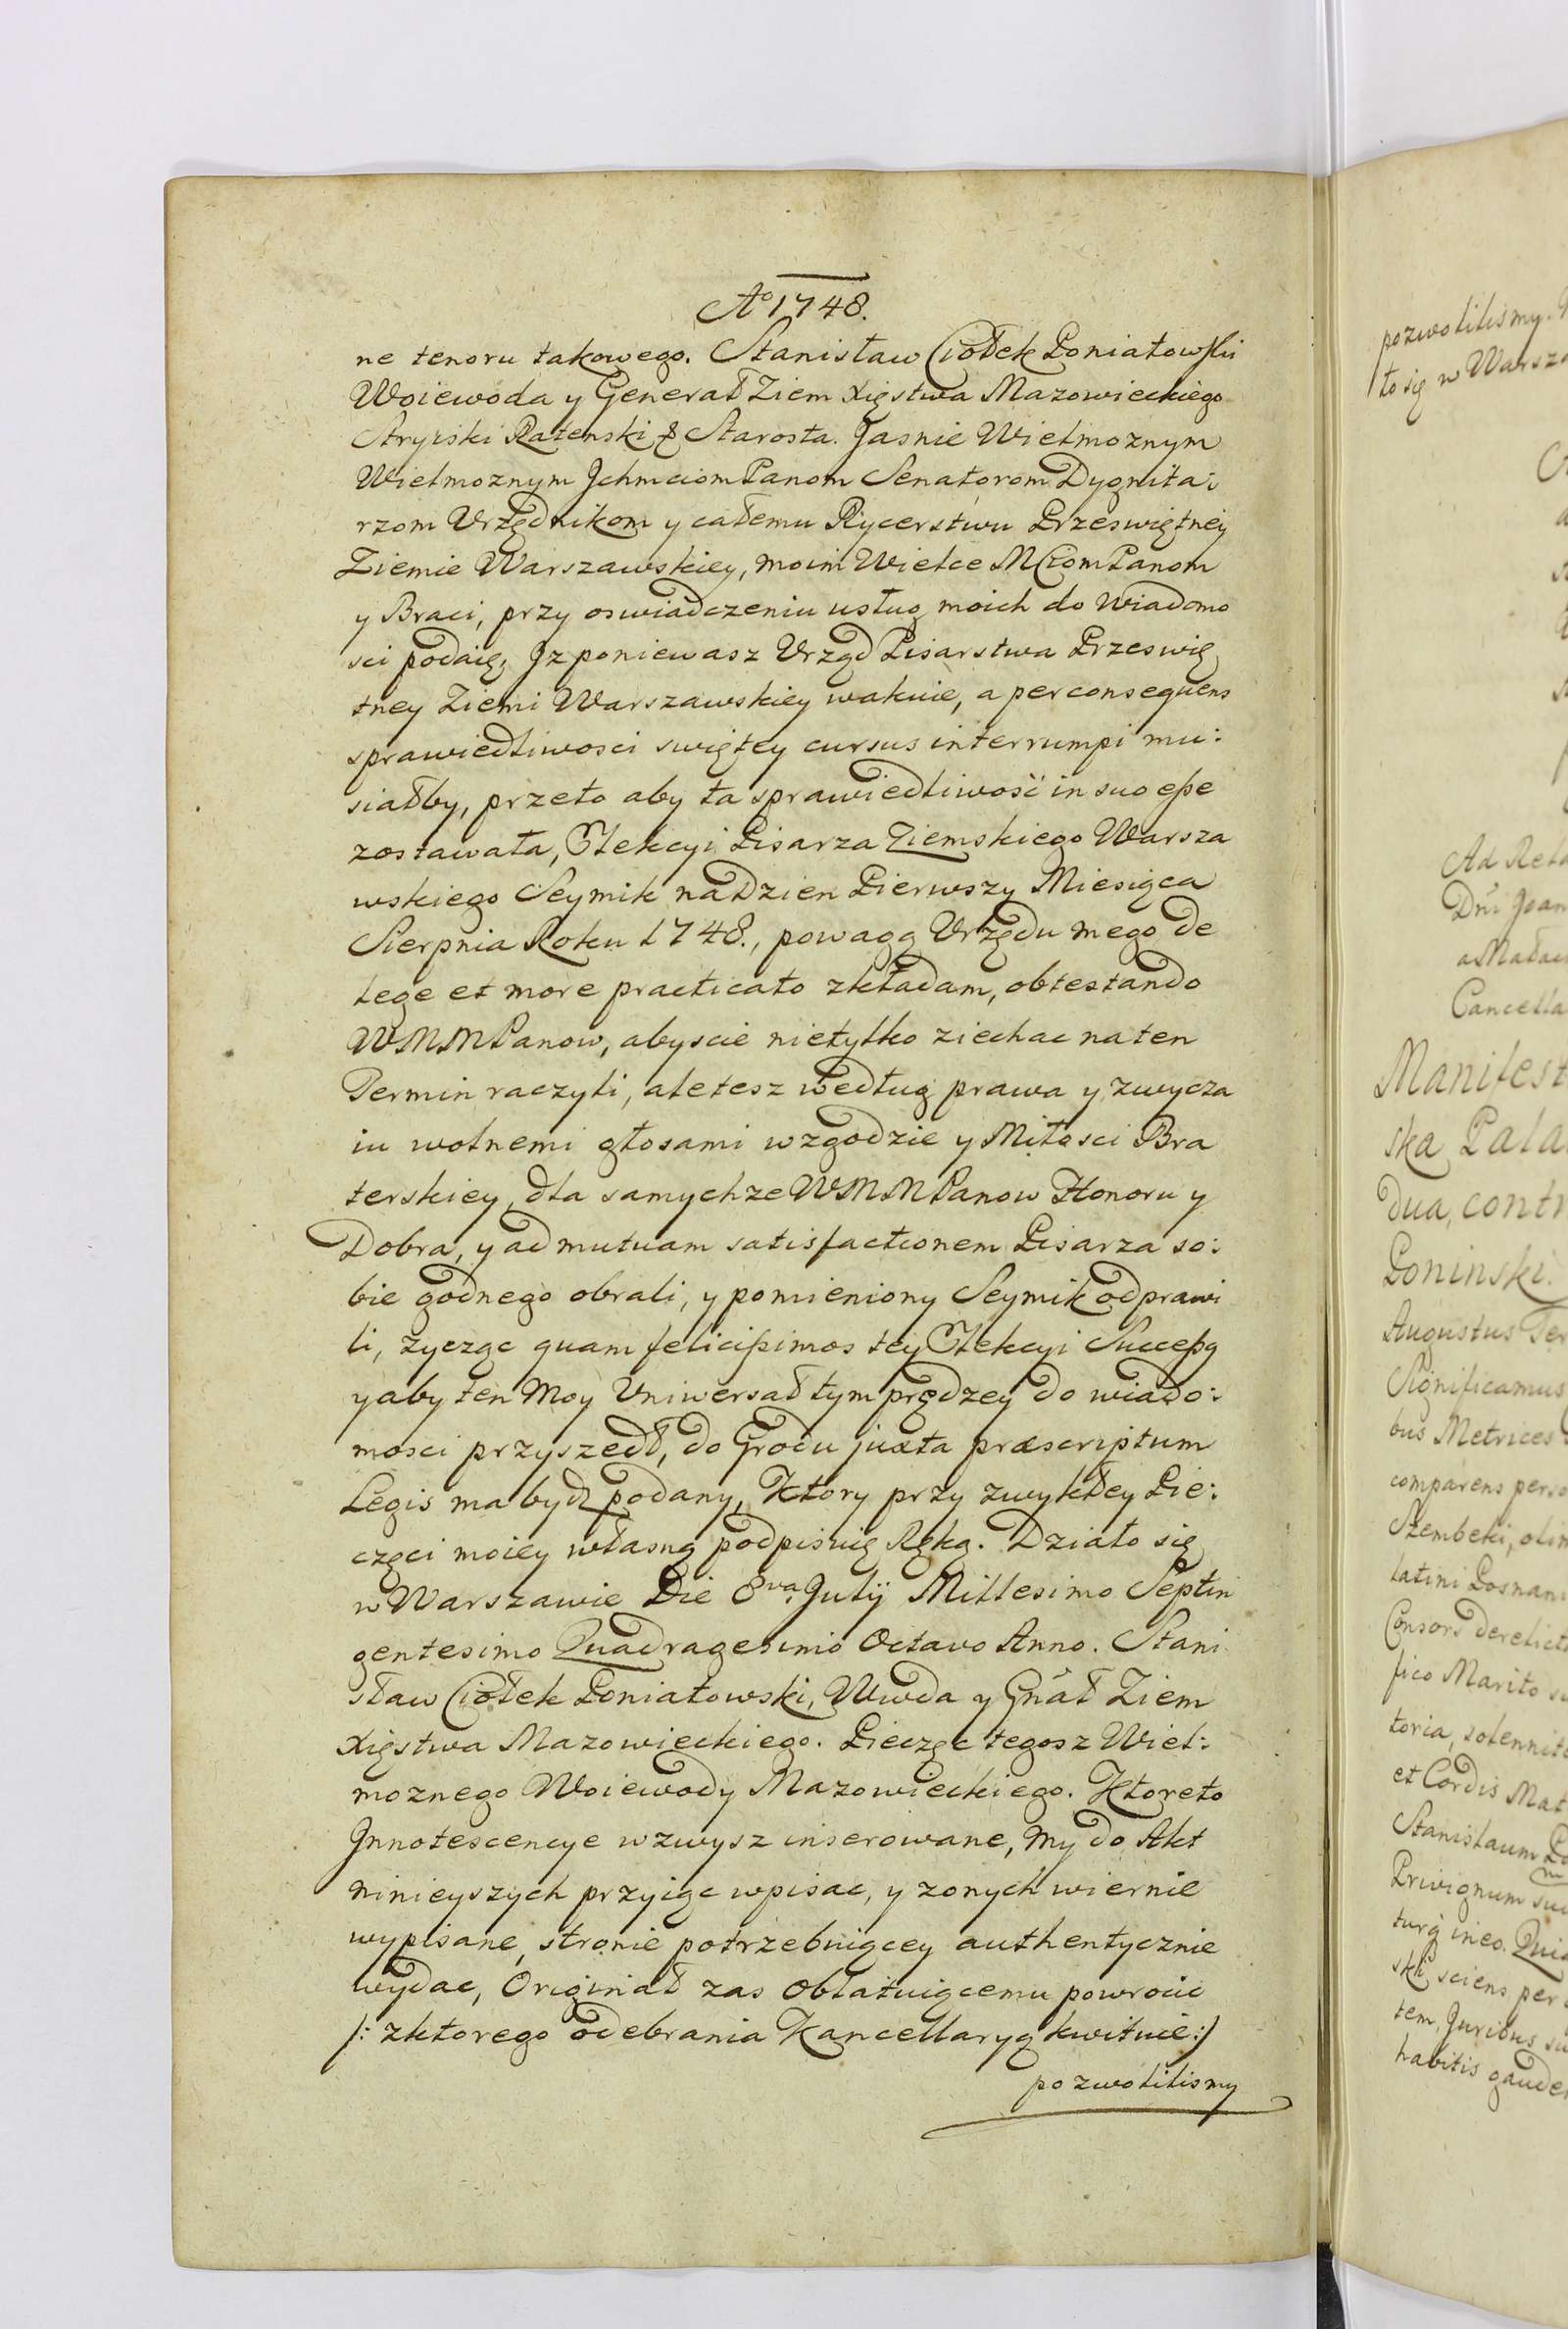 Aº 1748.
ne tenoru takowego. Stanisław Ciołek Poniatowski
Woiewoda y Generał Ziem Xięstwa Mazowieckiego
Stryiski Starosta. Jasnie Wielmoznym
Wielmoznym Jchmciom Panom Senatorom Dygnita:
rzom Vrzędnikom y całemu Rycerstwu Przeswiętney
Ziemie Warszawskiey, moim Wielce MCiom Panom
y Braci, przy oswiadczeniu usług moich do Wiadomo
sci podaię, Jz poniewasz Vrząd Pisarstwa Przeswię
tney Ziemi Warszawskiey wakuie, a per consequens
sprawiedliwosci swiętey cursus interrumpi mu:
siałby, przeto aby ta sprawiedliwość in suo eße
zostawała, Elekcyi Pisarza Ziemskiego Warsza
wskiego Seymik na Dzien Pierwszy Miesiąca
Sierpnia Roku 1748., powagą Vrzędu mego de
lege et more practicato zkładam, obtestando
WMMPanow, abyscie nietylko ziechac na ten
Termin raczyli, ale tesz według prawa y zwycza
iu wolnemi głosami w zgodzie y Miłosci Bra
terskiey, dla samychze WMMPanow Honoru y
Dobra, y ad mutuam satisfactionem Pisarza so:
bie godnego obrali, y pomieniony Seymik odprawi
li, zycząc quam felicißimos tey Elekcyi Succeßą
y aby ten Moy Vniwersał tym prędzey do wiado:
mosci przyszedł, do Grodu juxta præscriptum
Legis ma bydz podany, Ktory przy zwykłey Pie:
częci moiey własną podpisuię Ręką. Działo się
w Warszawie Die 8va Julÿ Millesimo Septin
gentesimo Quadragesimo Octavo Anno. Stani
sław Ciołek Poniatowski, Wwda y Gnał Ziem
Xięstwa Mazowieckiego. Pieczęc tegosz Wiel:
moznego Woiewody Mazowieckiego. Ktore to
Jnnotescencye wzwysz inserowane, my do Akt
ninieyszych przyiąc wpisac, y zonych wiernie
wypisane, stronie potrzebuiącey authentycznie
wydac, Originał zas oblatuiącemu powrocic
/: z ktorego odebrania Kancellaryą kwituie :/
pozwolilismy
pozwolilismy.
to się w Warsza
Ad Rela
Dni Joan
Cancella
Manifest
ska Pala
dua, contr
Poninski.
Augustus Ter
Significamus
bus Metrices
comparens perso
Szembeki, olim
latini Posnani
Consors derelicta
fico Marito su
toria, solennite
et Cordis Mat
Stanislaum Po
Privignum sui
ineo. Quia
ski sciens per
tem, Juribus su
habitis gaude